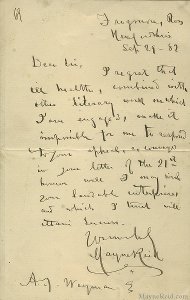 Frogmore, Ross
Herefordshire
Sep 24 - 82
Dear Sir, I regret that
ill health, combined with
other literary work on which
I am engaged, makes it
impossible for me to respond
to your appeal, as conveyed
in your letter of the 21st
however well I may wish
your laudable enterprise
and which I trust will
attain success.
Yours truly
Mayne Reid
A. J. Wayman
MayneReid.com